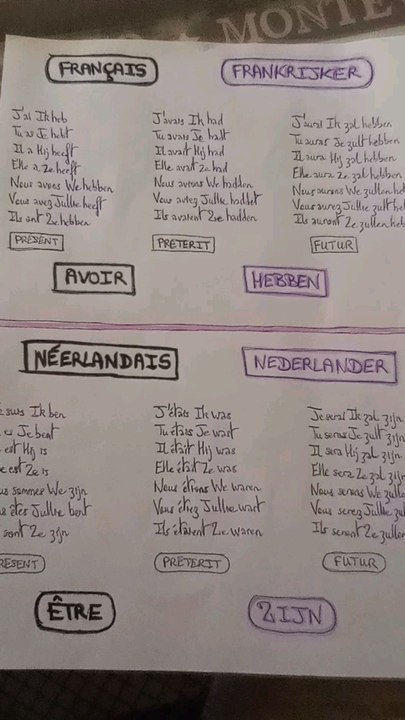 MONTE
FRANÇAIS FRANKRIJKER
J'ai Ik heb J'avais Ik had J'aurai Ik zal hebben
Tu as Je hebt Tu avais Je hadt Tu auras Je zult hebben
Il a Hij heeft Il avait Hij had Il aura Hij zal hebben
Elle a Ze heeft Elle avait Ze had Elle aura Ze zal hebben
Nous avons We hebben Nous avions We hadden Nous aurons We zullen heb
Vous avez Jullie heeft Vous aviez Jullie haddet Vous aurez Jullie zult heb
Ils ont Ze hebben Ils avaient Ze hadden Ils auront Ze zullen heb
PRÉSENT PRÉTERIT FUTUR
AVOIR HEBBEN
NÉERLANDAIS NEDERLANDER
e suis Ik ben J'étais Ik was Je serai Ik zal zijn
es Je bent Tu étais Je wart Tu seras Je zult zijn
est Hij is Il était Hij was Il sera Hij zal zijn
e est Ze is Elle était Ze was Elle sera Ze zal zijn
us sommes We zijn Nous étions We waren Nous serons We zullen
us êtes Jullie bent Vous étiez Jullie wart Vous serez Jullie zult
sont Ze zijn Ils étaient Ze waren Ils seront Ze zullen
RÉSENT PRÉTERIT FUTUR
ÊTRE ZIJN